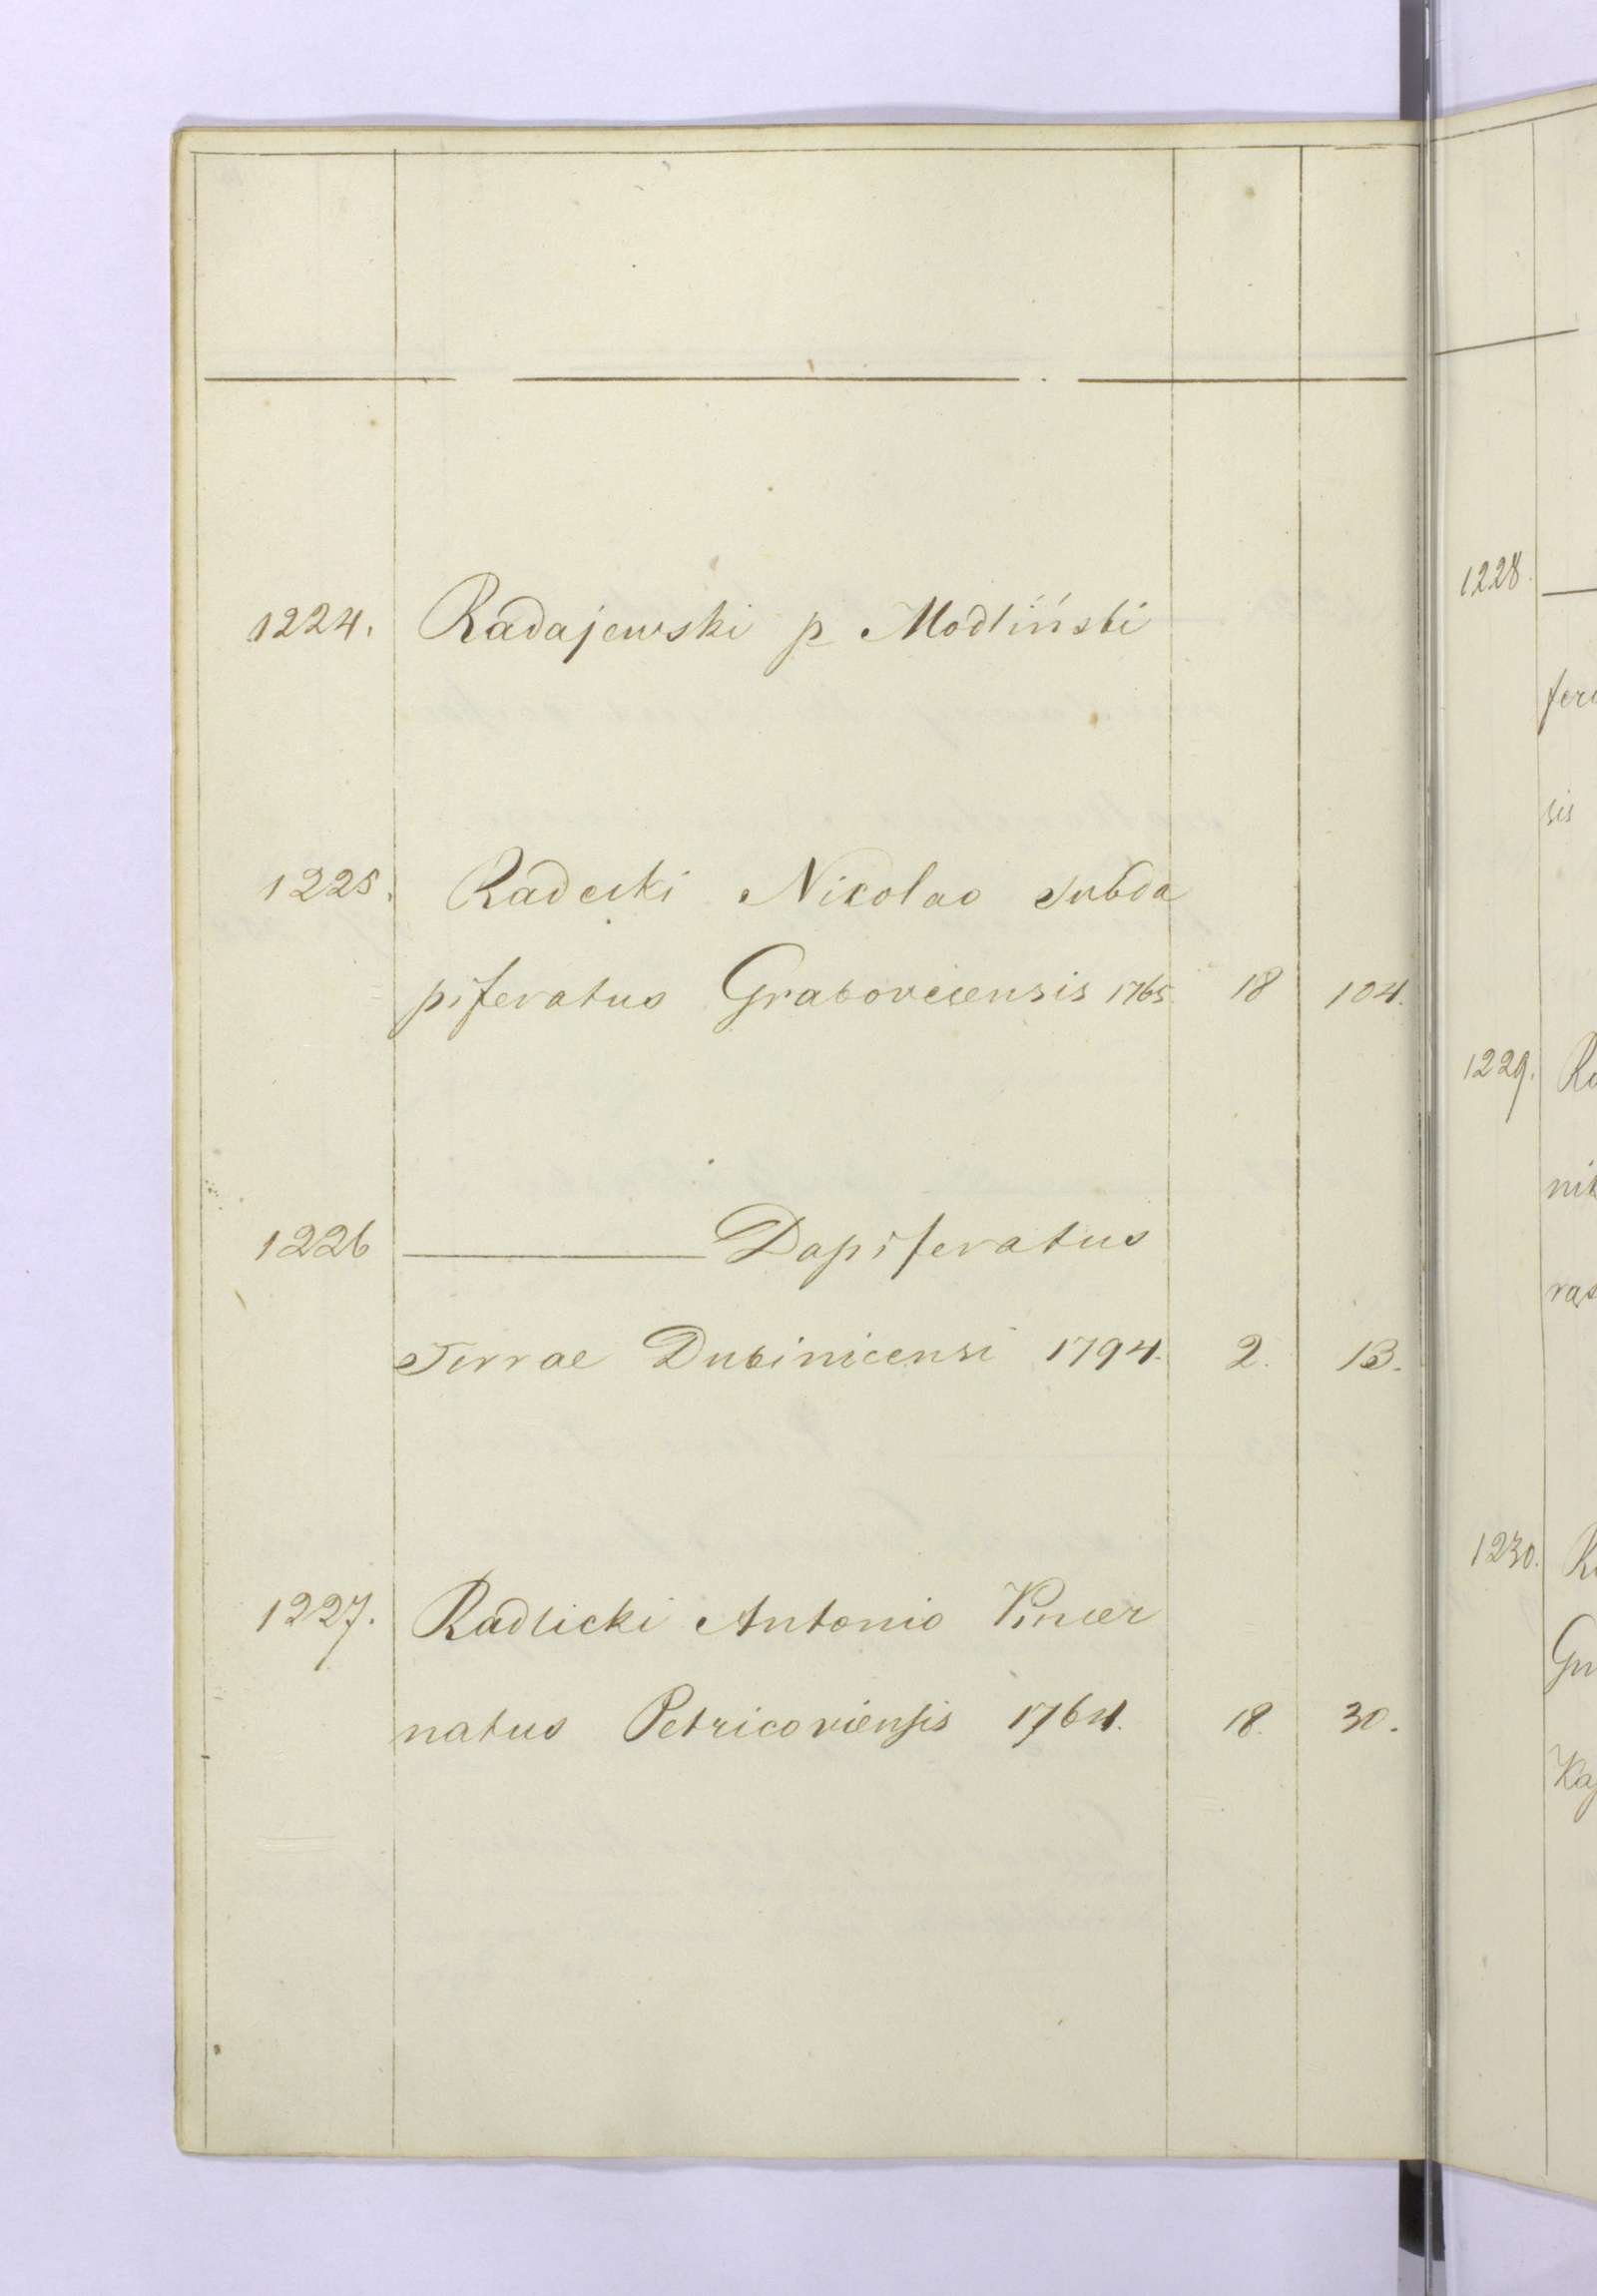 1224. Radajewski p Modliński
1225. Radecki Nicolao Subda
piferatus Graboviecensis 1765. 18 104.
1226 ——— Dapiferatus
Terrae Dubinicensi 1794. 2. 13.
1227. Radlicki Antonio Pincer
natus Petricoviensis 1764. 18. 30.
1228.
sis
1229.
1230.